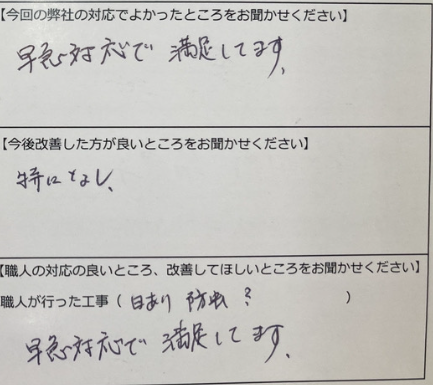 【今回の弊社の対応でよかったところをお聞かせください】
早急対応で 満足してます、
【今後改善した方が良いところをお聞かせください】
特になし、
【職人の対応の良いところ、改善してほしいところをお聞かせください】
職人が行った工事( 白あり 防虫 ? )
早急対応で 満足してます、